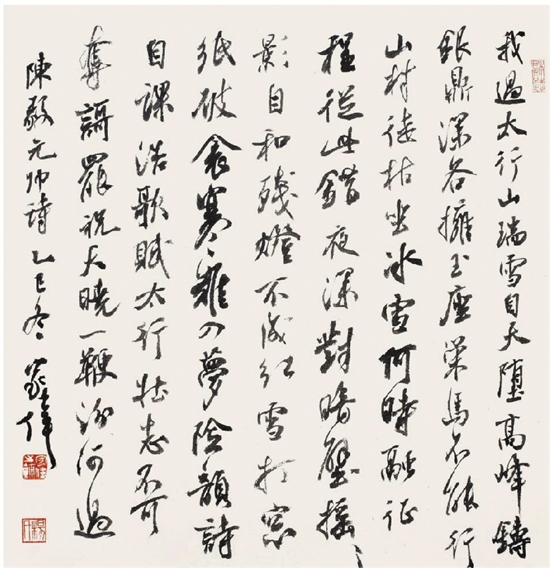 我過太行山瑞雪自天墮高峰鑄
銀鼎深谷擁玉座策馬不能行
山村徒枯坐冰雪何時融征
程從此錯夜深對暗壁搖〻
影自和殘燈不成紅雪打窗
紙破衾寒難入夢險韻詩
自課浩歌賦太行壯志不可
奪謳罷祝天曉一鞭汾河過
陳毅元帅詩 乙巳冬 家偉